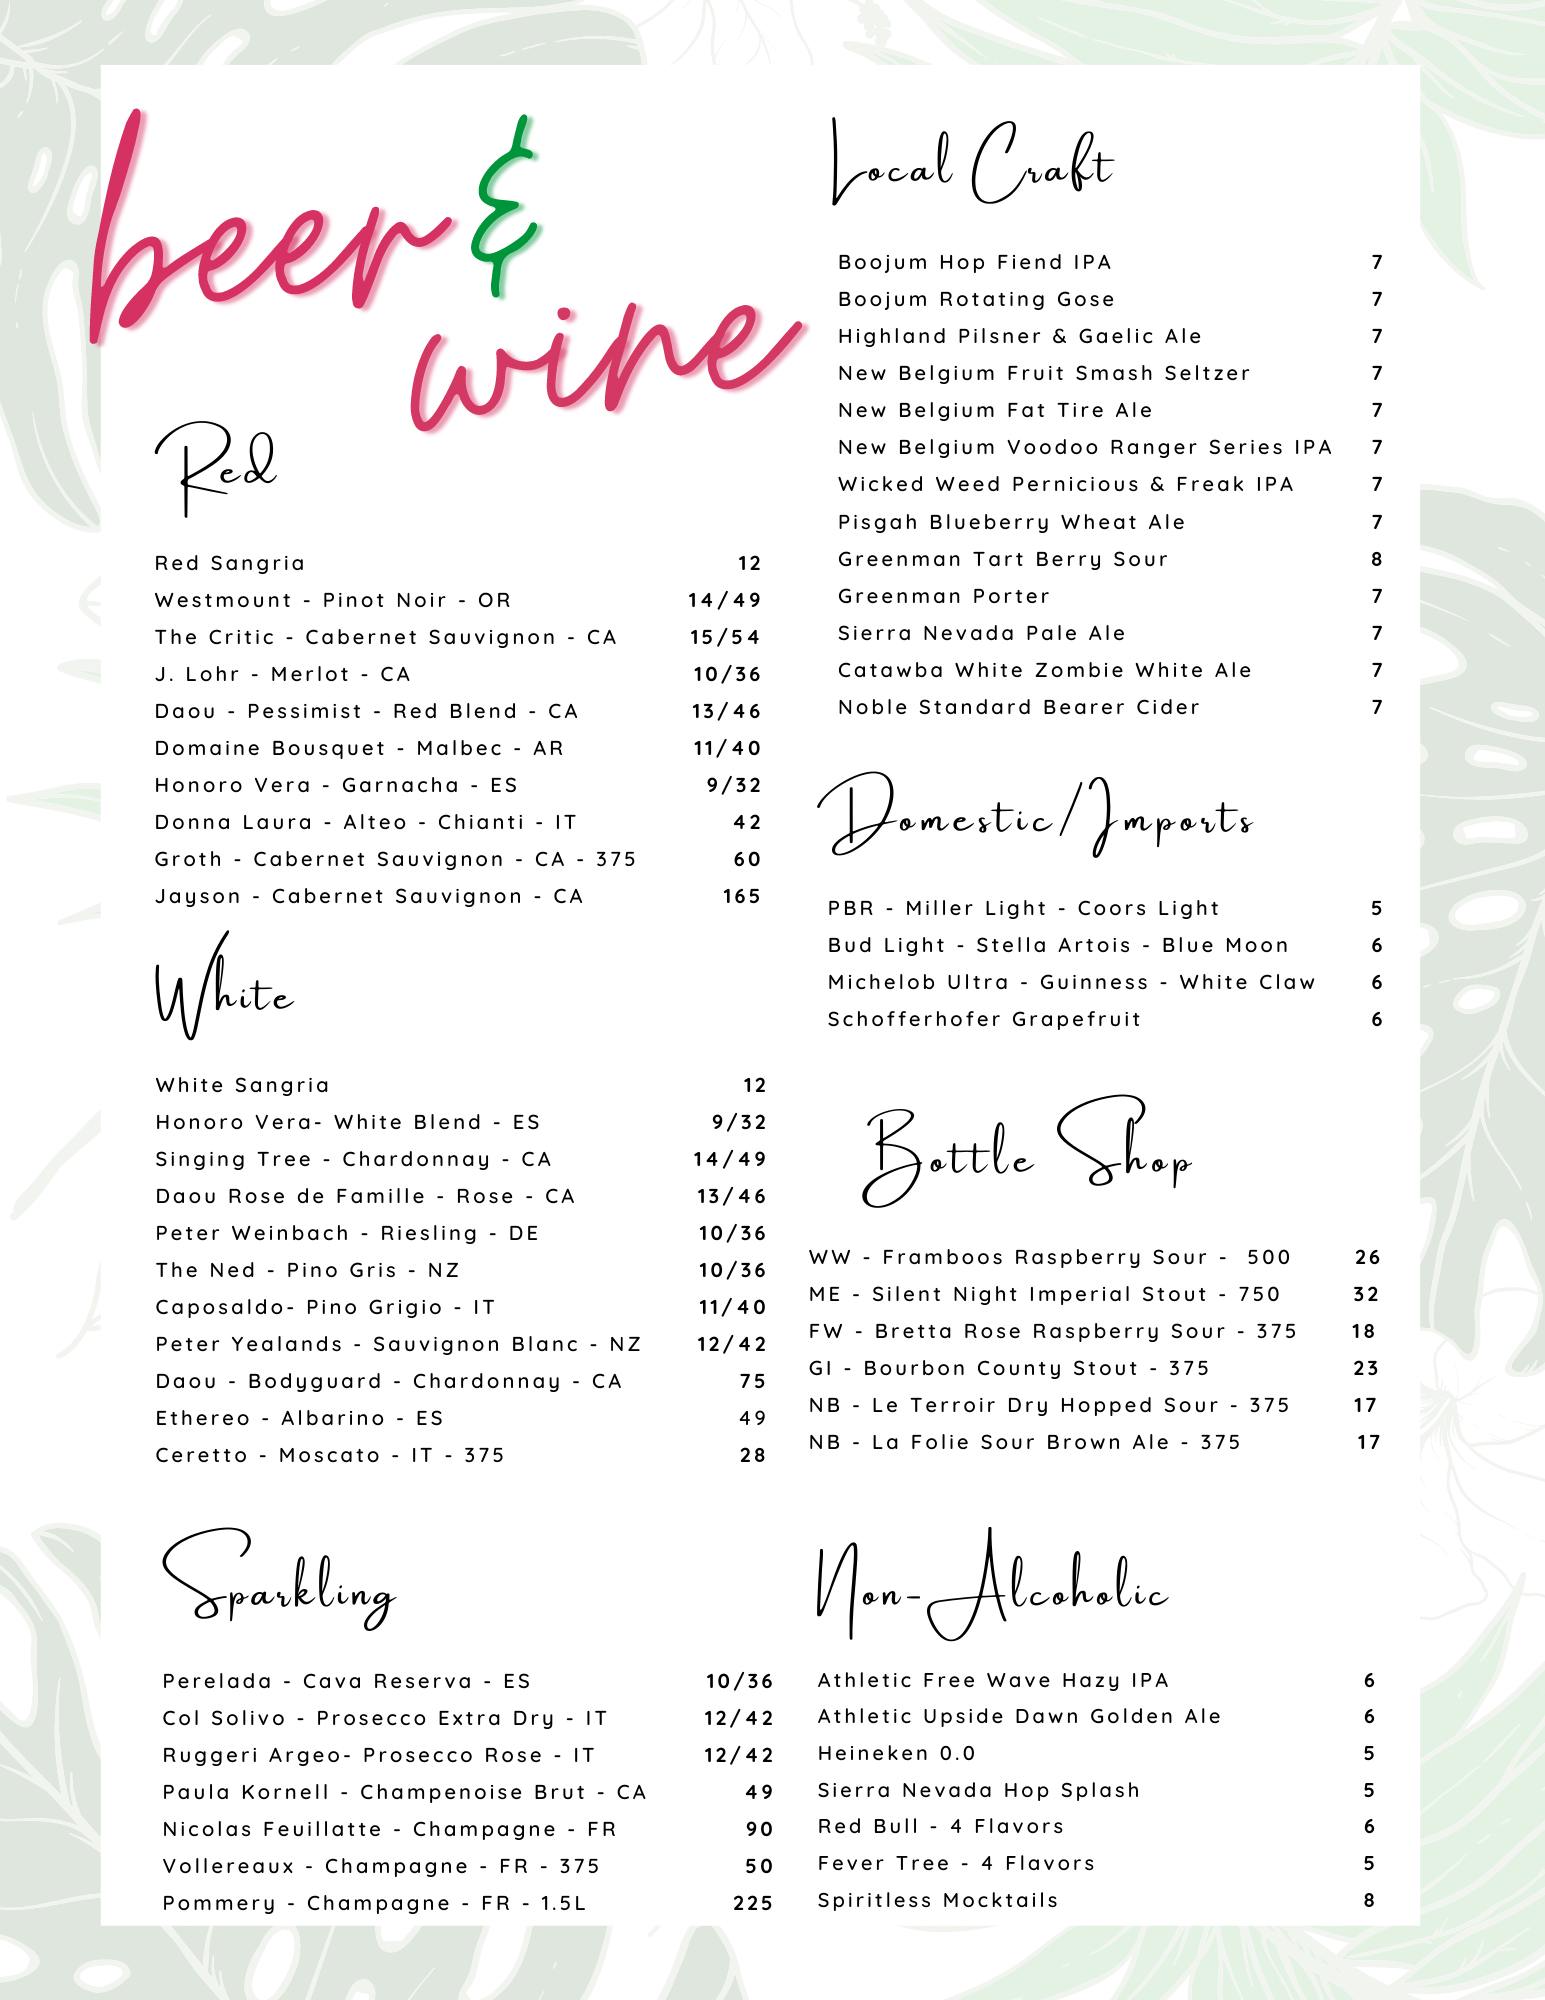 beer &
wine
Red
Red Sangria 12
Westmount - Pinot Noir - OR 14/49
The Critic - Cabernet Sauvignon - CA 15/54
J. Lohr - Merlot - CA 10/36
Daou - Pessimist - Red Blend - CA 13/46
Domaine Bousquet - Malbec - AR 11/40
Honoro Vera - Garnacha - ES 9/32
Donna Laura - Alteo - Chianti - IT 42
Groth - Cabernet Sauvignon - CA - 375 60
Jayson - Cabernet Sauvignon - CA 165
White
White Sangria 12
Honoro Vera- White Blend - ES 9/32
Singing Tree - Chardonnay - CA 14/49
Daou Rose de Famille - Rose - CA 13/46
Peter Weinbach - Riesling - DE 10/36
The Ned - Pino Gris - NZ 10/36
Caposaldo- Pino Grigio - IT 11/40
Peter Yealands - Sauvignon Blanc - NZ 12/42
Daou - Bodyguard - Chardonnay - CA 75
Ethereo - Albarino - ES 49
Ceretto - Moscato - IT - 375 28
Sparkling
Perelada - Cava Reserva - ES 10/36
Col Solivo - Prosecco Extra Dry - IT 12/42
Ruggeri Argeo- Prosecco Rose - IT 12/42
Paula Kornell - Champenoise Brut - CA 49
Nicolas Feuillatte - Champagne - FR 90
Vollereaux - Champagne - FR - 375 50
Pommery - Champagne - FR - 1.5L 225
Local Craft
Boojum Hop Fiend IPA 7
Boojum Rotating Gose 7
Highland Pilsner & Gaelic Ale 7
New Belgium Fruit Smash Seltzer 7
New Belgium Fat Tire Ale 7
New Belgium Voodoo Ranger Series IPA 7
Wicked Weed Pernicious & Freak IPA 7
Pisgah Blueberry Wheat Ale 7
Greenman Tart Berry Sour 8
Greenman Porter 7
Sierra Nevada Pale Ale 7
Catawba White Zombie White Ale 7
Noble Standard Bearer Cider 7
Domestic/Imports
PBR - Miller Light - Coors Light 5
Bud Light - Stella Artois - Blue Moon 6
Michelob Ultra - Guinness - White Claw 6
Schofferhofer Grapefruit 6
Bottle Shop
WW - Framboos Raspberry Sour - 500 26
ME - Silent Night Imperial Stout - 750 32
FW - Bretta Rose Raspberry Sour - 375 18
GI - Bourbon County Stout - 375 23
NB - Le Terroir Dry Hopped Sour - 375 17
NB - La Folie Sour Brown Ale - 375 17
Non-Alcoholic
Athletic Free Wave Hazy IPA 6
Athletic Upside Dawn Golden Ale 6
Heineken 0.0 5
Sierra Nevada Hop Splash 5
Red Bull - 4 Flavors 6
Fever Tree - 4 Flavors 5
Spiritless Mocktails 8